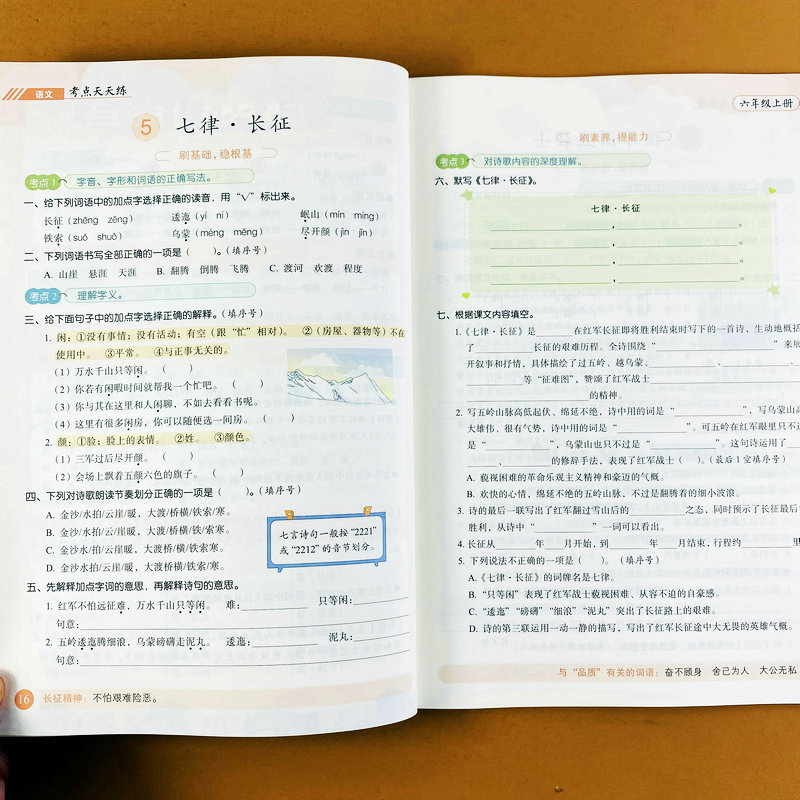 语文 考点天天练
5 七律·长征
刷基础,稳根基
考点1 字音、字形和词语的正确写法。
一、给下列词语中的加点字选择正确的读音,用“√”标出来。
长征(zhēng zēng) 逶迤(yí ní) 岷山(mín míng)
铁索(suǒ shuǒ) 乌蒙(méng mēng) 尽开颜(jìn jǐn)
二、下列词语书写全部正确的一项是( )。(填序号)
A. 山崖 悬涯 天涯 B. 翻腾 倒腾 飞腾 C. 渡河 欢渡 程度
考点2 理解字义。
三、给下面句子中的加点字选择正确的解释。(填序号)
1. 闲:①没有事情;没有活动;有空(跟“忙”相对)。 ②(房屋、器物等)不在
使用中。 ③平常。 ④与正事无关的。
(1)万水千山只等闲。( )
(2)你若有闲暇时间就帮我一个忙吧。( )
(3)你与其在这里和人闲聊,不如去看看书呢。 ( )
(4)这里有很多闲房,你可以随便选一间房。 ( )
2. 颜:①脸;脸上的表情。 ②姓。 ③颜色。
(1)三军过后尽开颜。( )
(2)会场上飘着五颜六色的旗子。( )
四、下列对诗歌朗读节奏划分正确的一项是( )。(填序号)
A. 金沙/水拍/云崖/暖,大渡/桥横/铁索/寒。
B. 金沙/水拍/云/崖暖,大渡/桥横/铁/索寒。
C. 金沙/水拍/云崖暖,大渡/桥横/铁索寒。
D. 金沙水/拍/云崖/暖,大渡桥/横/铁索/寒。
七言诗句一般按“2221”
或“2212”的音节划分。
五、先解释加点字词的意思,再解释诗句的意思。
1. 红军不怕远征难,万水千山只等闲。 难: 只等闲:
句意:
2. 五岭逶迤腾细浪,乌蒙磅礴走泥丸。 逶迤: 泥丸:
句意:
16 长征精神:不怕艰难险恶。
六年级上册
刷素养,提能力
考点3 对诗歌内容的深度理解。
六、默写《七律·长征》。
七律·长征
, 。
, 。
, 。
, 。
七、根据课文内容填空。
1.《七律·长征》是 在红军长征即将胜利结束时写下的一首诗,生动地概括
了 长征的艰难历程。全诗围绕“ ”来展
开叙事和抒情,具体描绘了过五岭、越乌蒙、 、
等“征难图”,赞颂了红军战士
的精神。
2. 写五岭山脉高低起伏、绵延不绝,诗中用的词是“ ”,写乌蒙山高
大雄伟、很有气势,诗中用的词是“ ”。可五岭在红军眼里只不过
是“ ”,乌蒙山也只不过是“ ”。这句诗运用了
、 的修辞手法,表现了红军战士( )。(最后1空填序号)
A. 藐视困难的革命乐观主义精神和豪迈的气概。
B. 欢快的心情,绵延不绝的五岭山脉,不过是翻腾着的细小波浪。
3. 诗的最后一联写出了红军翻过雪山后的 之态,同时预示了长征最后的
胜利,从诗中“ ”一词可以看出。
4. 长征从 年 月开始,到 年 月结束,行程约 里
5. 下列说法不正确的一项是( )。(填序号)
A.《七律·长征》的词牌名是七律。
B. “只等闲”表现了红军战士藐视困难、从容不迫的自豪感。
C. “逶迤”“磅礴”“细浪”“泥丸”突出了长征路上的艰难。
D. 诗的第三联运用一动一静的描写,写出了红军长征途中大无畏的英雄气概。
与“品质”有关的词语:奋不顾身 舍己为人 大公无私